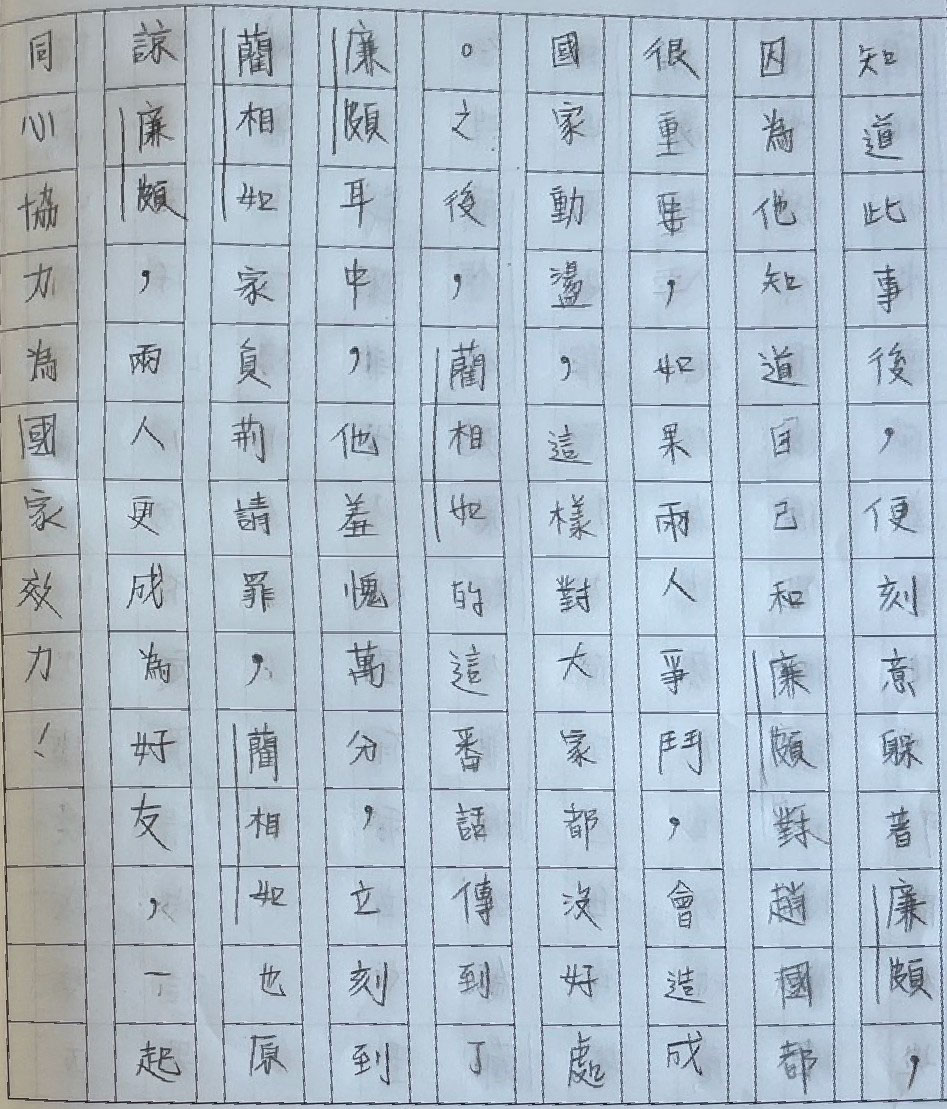 知道此事後，便刻意躲著廉頗，
因為他知道自己和廉頗對趙國都
很重要，如果兩人爭鬥，會造成
國家動盪，這樣對大家都沒好處
。之後，藺相如的這番話傳到了
廉頗耳中，他羞愧萬分，立刻到
藺相如家負荊請罪，藺相如也原
諒廉頗，兩人更成為好友，一起
同心協力為國家效力！